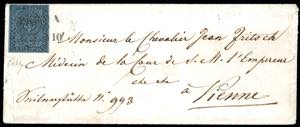 Monsieur le Chevalier Jean Fritsch
Médecin de la Cour de S. M. l'Empereur
etc etc
à
Seilerstätte N. 993
Vienne